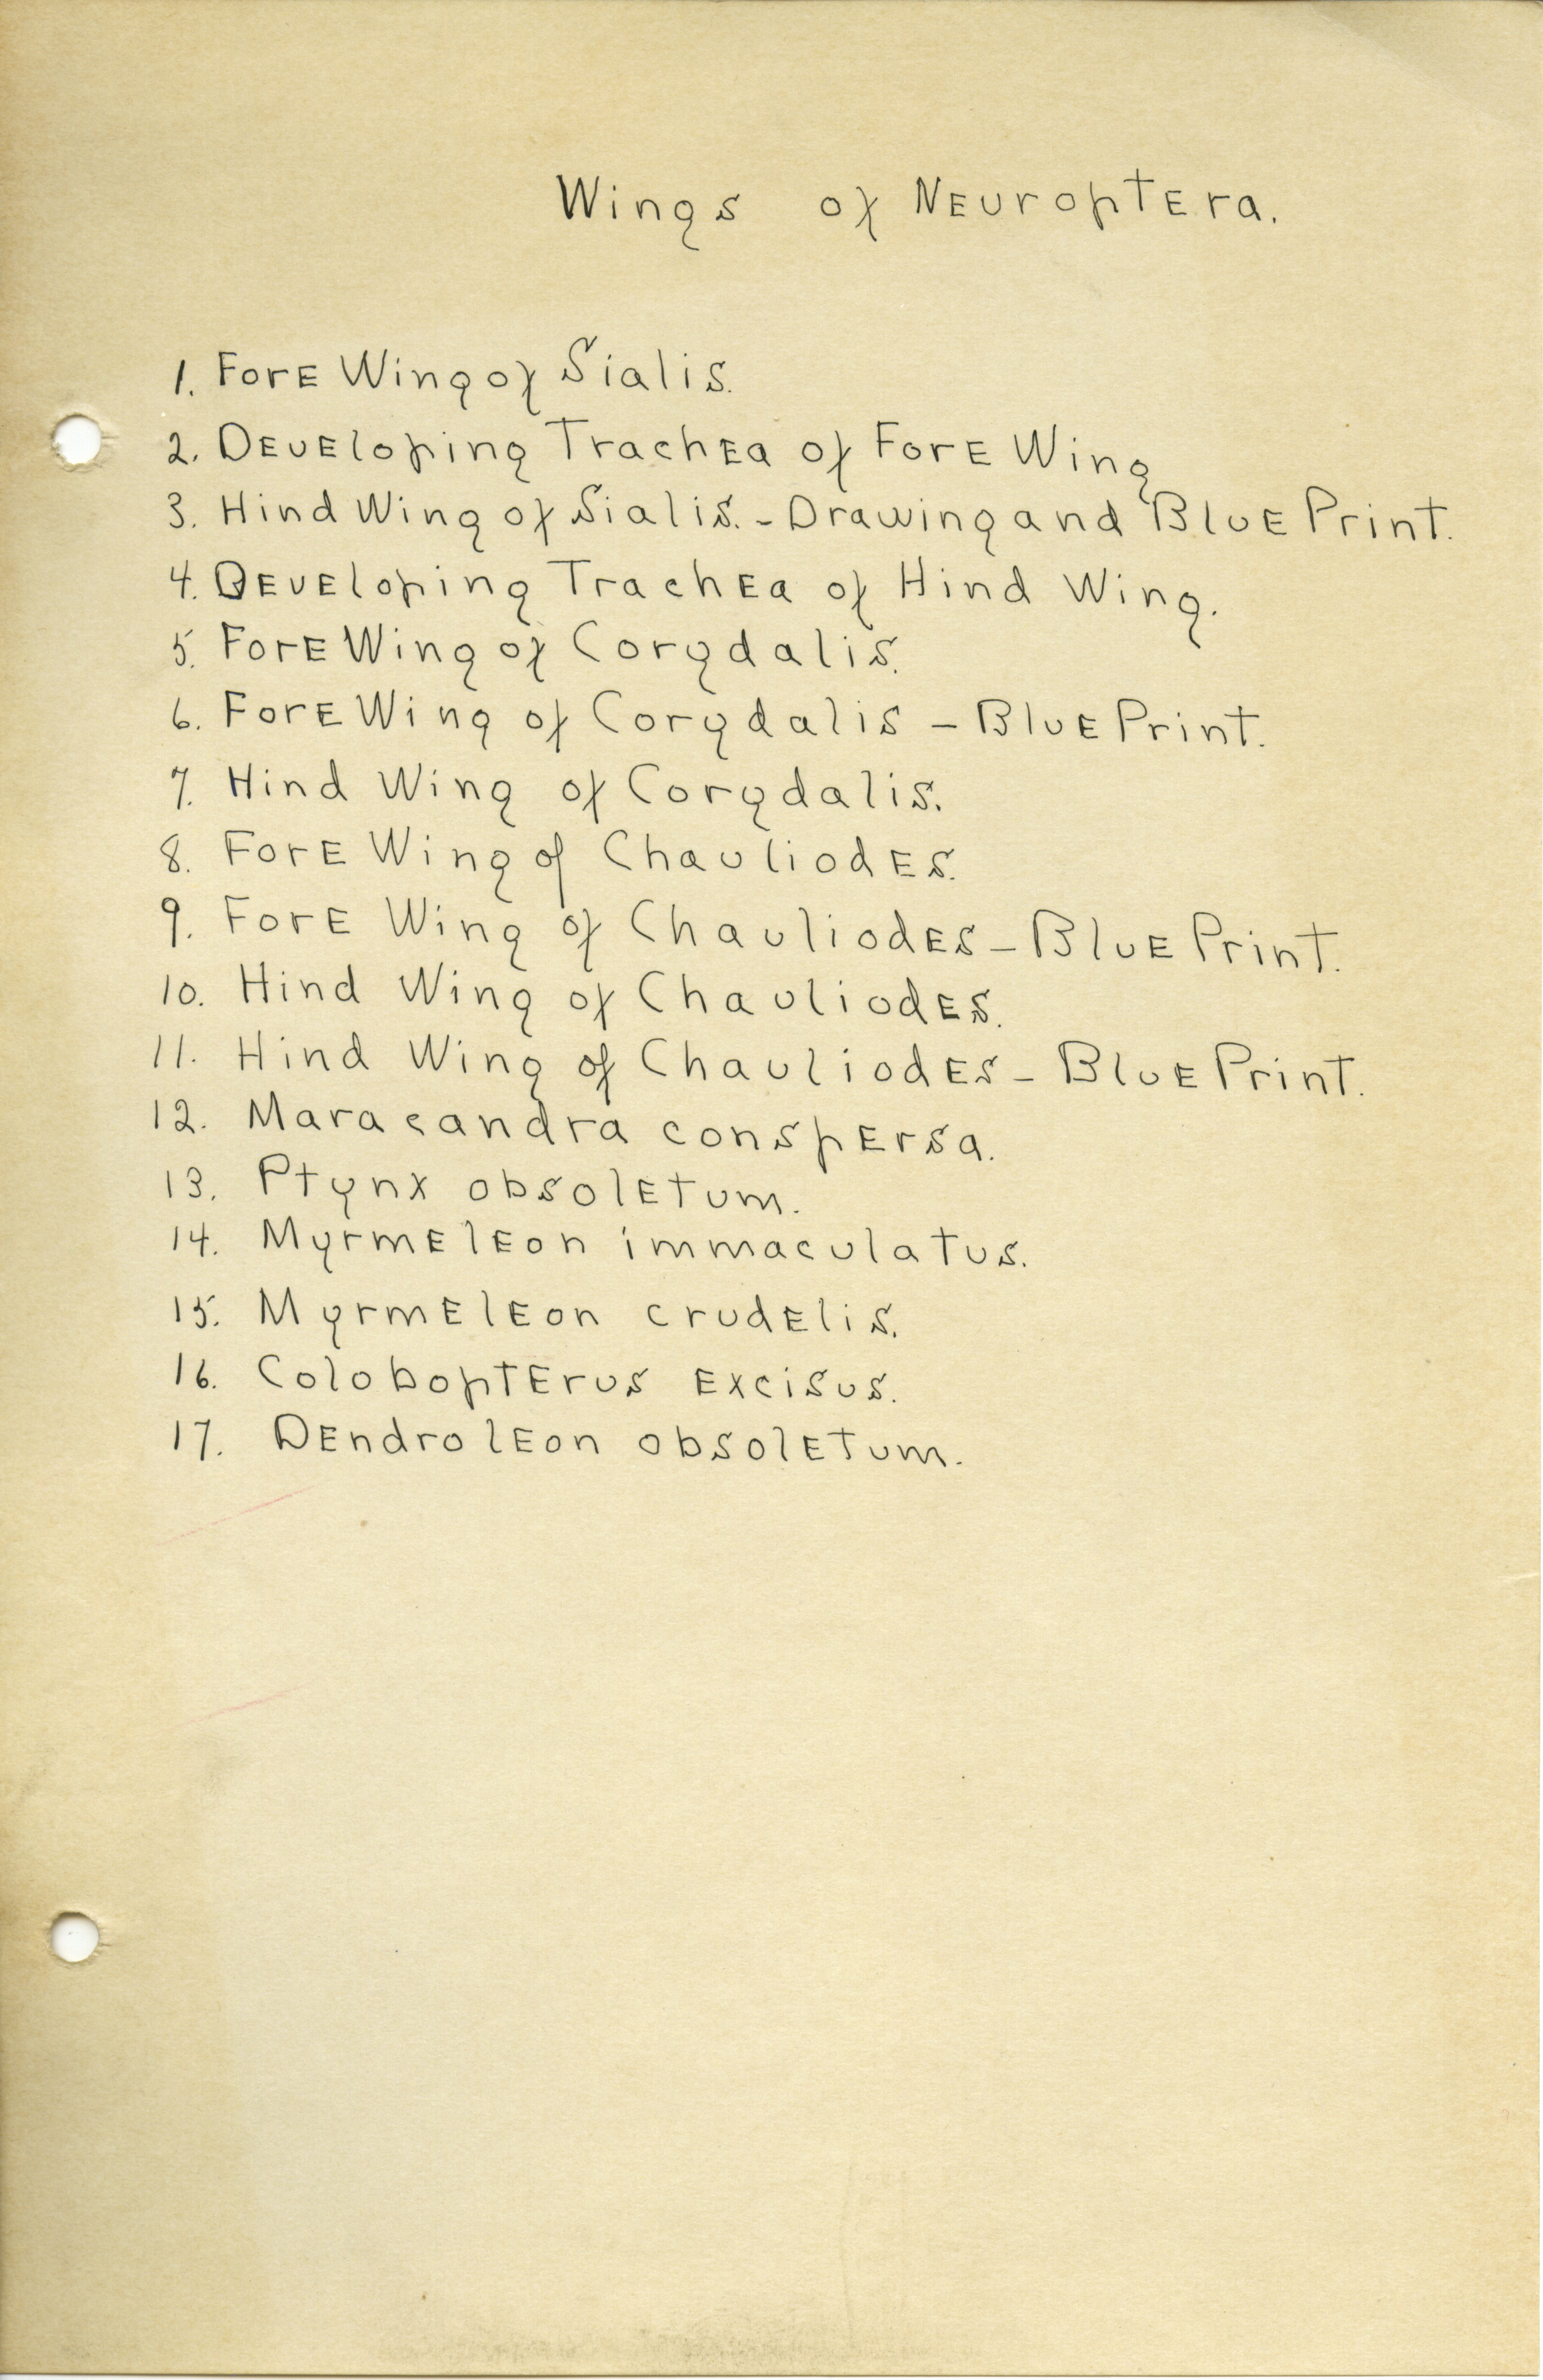 Wings of Neuroptera.
1. Fore Wing of Sialis.
2. Developing Trachea of Fore Wing
3. Hind Wing of Sialis. - Drawing and Blue Print.
4. Developing Trachea of Hind Wing.
5. Fore Wing of Corydalis.
6. Fore Wing of Corydalis - Blue Print.
7. Hind Wing of Corydalis.
8. Fore Wing of Chauliodes.
9. Fore Wing of Chauliodes - Blue Print.
10. Hind Wing of Chauliodes.
11. Hind Wing of Chauliodes - Blue Print.
12. Maracandra conspersa.
13. Ptynx obsoletum.
14. Myrmeleon immaculatus.
15. Myrmeleon crudelis.
16. Colobopterus excisus.
17. Dendroleon obsoletum.